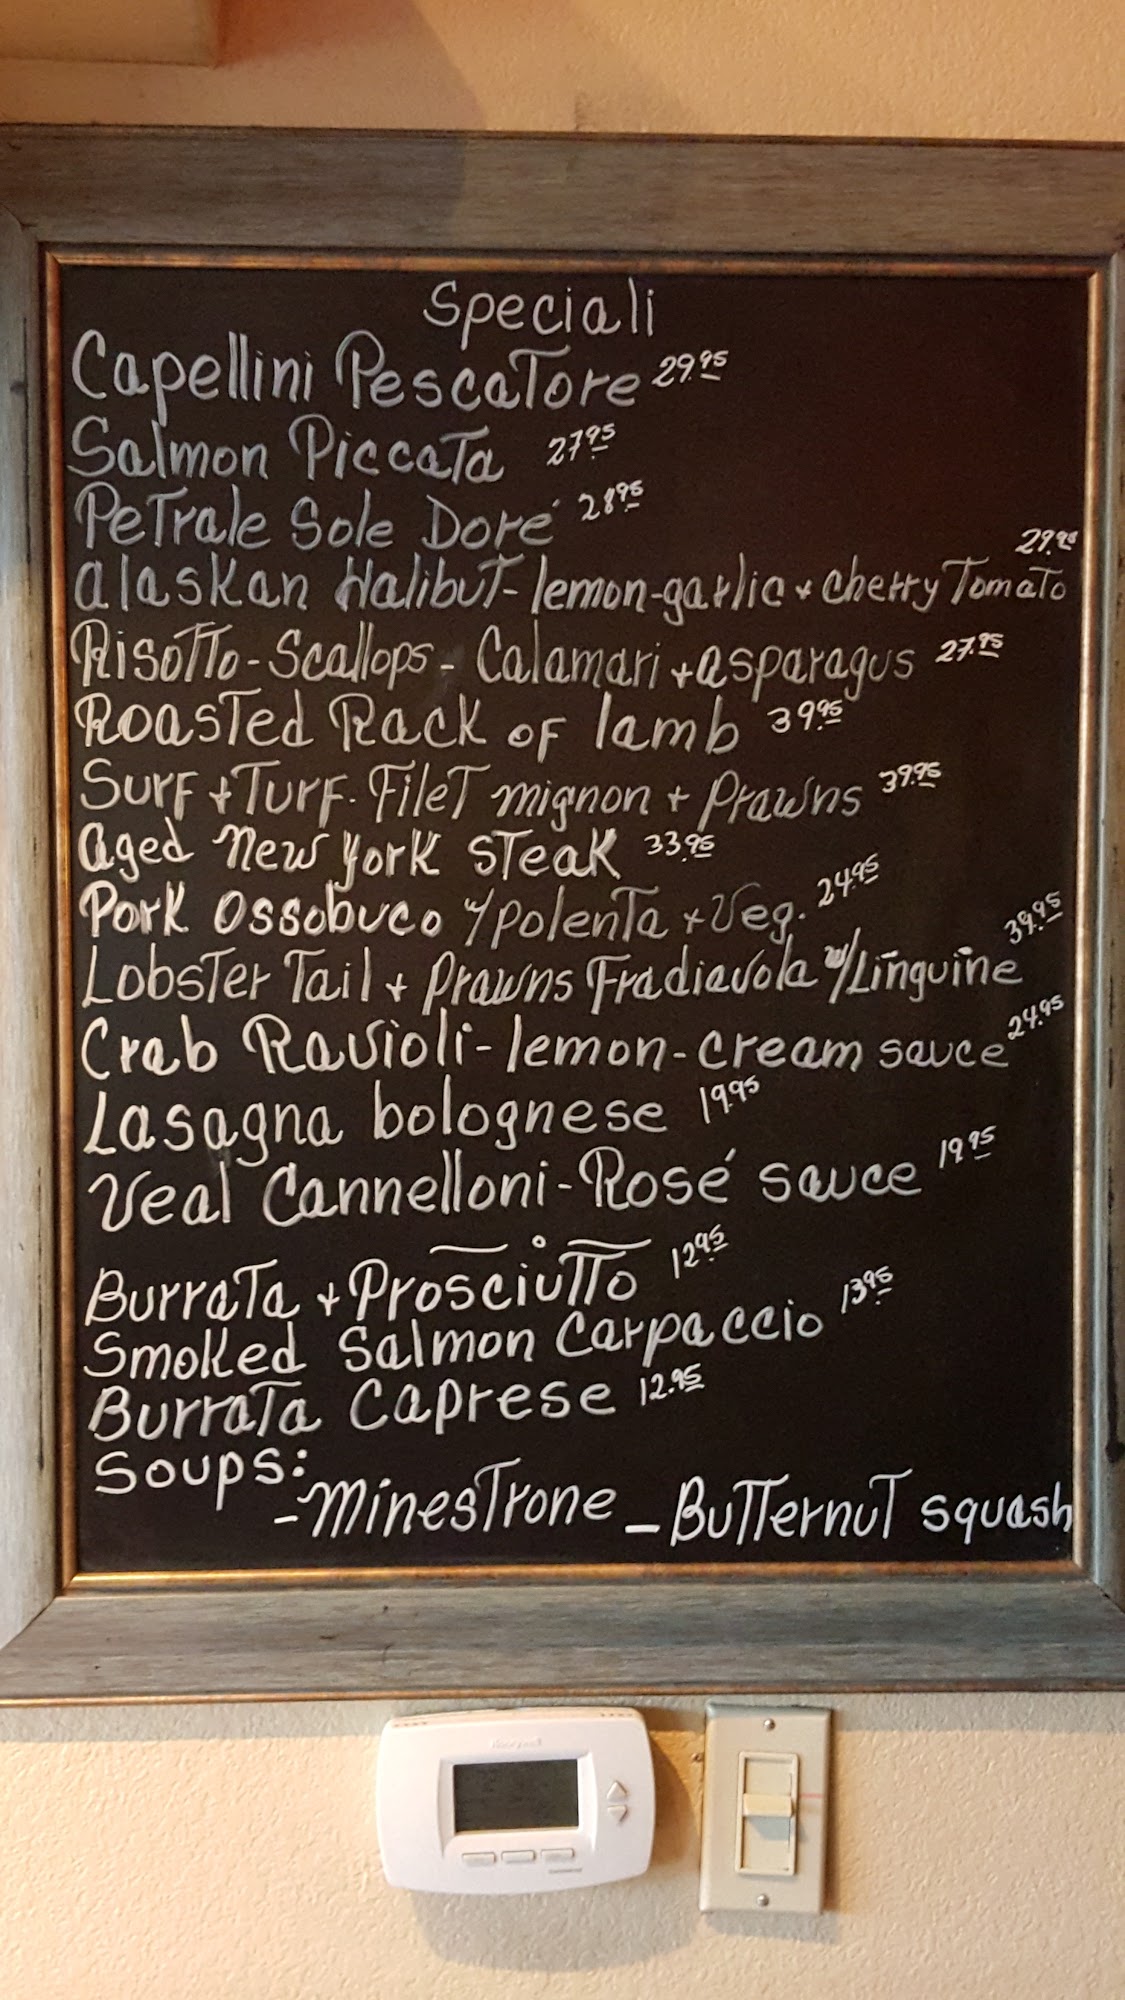 Speciali
Capellini Pescatore 29.95
Salmon Piccata 27.95
Petrale Sole Doré 28.95
Alaskan Halibut - lemon-garlic + cherry Tomato 29.95
Risotto - Scallops - Calamari + asparagus 27.95
Roasted Rack of lamb 39.95
Surf + Turf. Filet mignon + Prawns 39.95
Aged New York Steak 33.95
Pork Ossobuco w/ polenta + Veg. 24.95
Lobster Tail + Prawns Fradiavola w/ Linguine 39.95
Crab Ravioli - lemon-cream sauce 24.95
Lasagna bolognese 19.95
Veal Cannelloni - Rosé sauce 19.95
Burrata + Prosciutto 12.95
Smoked Salmon Carpaccio 13.95
Burrata Caprese 12.95
Soups:
- Minestrone - Butternut squash
Honeywell